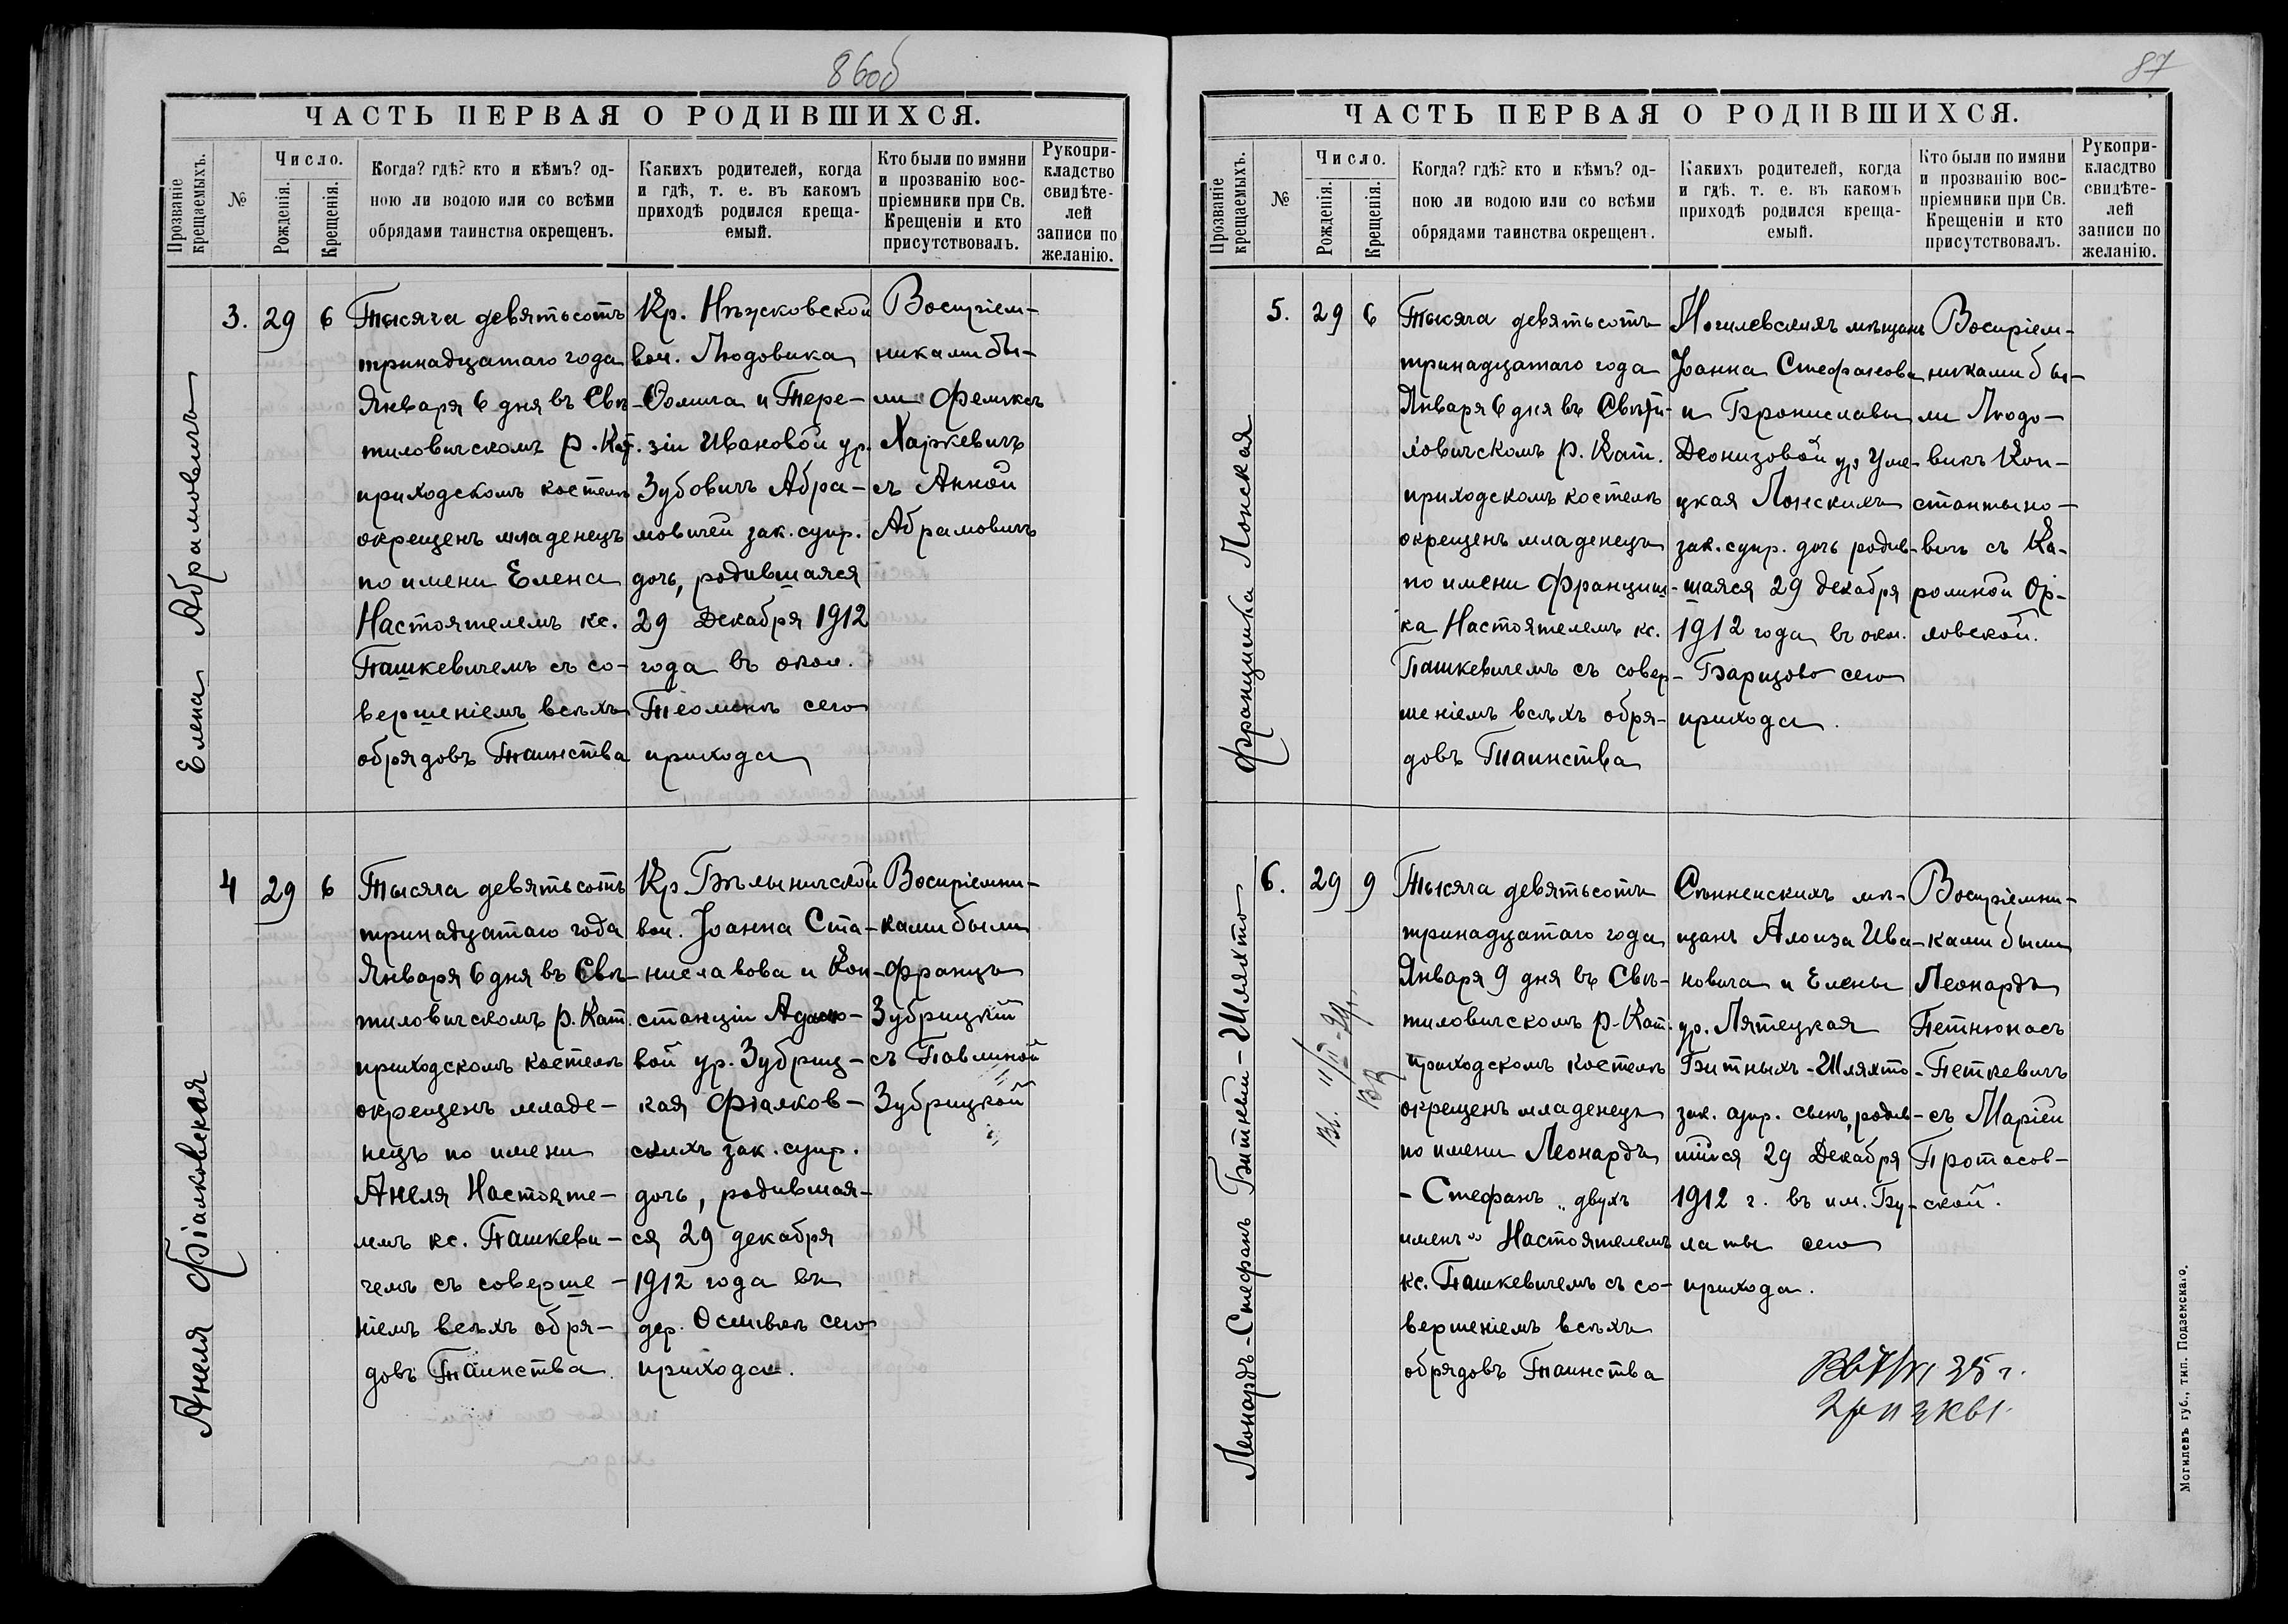 86об
ЧАСТЬ ПЕРВАЯ О РОДИВШИХСЯ.
Прозваніе крещаемыхъ.
№
Число.
Рожденія.
Крещенія.
Когда? гдѣ? кто и кѣмъ? од-
ною ли водою или со всѣми
обрядами таинства окрещенъ.
Какихъ родителей, когда
и гдѣ, т. е. въ какомъ
приходѣ родился креща-
емый.
Кто были по имяни
и прозванію вос-
пріемники при Св.
Крещеніи и кто
присутствовалъ.
Рукопри-
кладство
свидѣте-
лей
записи по
желанію.
Елена Абрамовичъ
3.
29
6
Тысяча девятьсотъ
тринадцатаго года
Января 6 дня въ Свѣ-
тиловичскомъ р. Кат.
приходскомъ костелѣ
окрещенъ младенецъ
по имени Елена
Настоятелемъ кс.
Пашкевичемъ съ со-
вершеніемъ всѣхъ
обрядовъ Таинства
Кр.
вол. Людовика
Ѳомича и Тере-
зіи Ивановой ур.
Зубовичъ Абра-
мовичей зак. супр.
дочь, родившаяся
29 Декабря 1912
года въ окол.
сего
прихода
Воспріем-
никами бы-
ли Феликсъ
Харкевичъ
съ Анной
Абрамовичъ
Анеля Фіалковская
4
29
6
Тысяча девятьсотъ
тринадцатаго года
Января 6 дня въ Свѣ-
тиловичскомъ р. Кат.
приходскомъ костелѣ
окрещенъ младе-
нецъ по имени
Анеля Настояте-
лемъ кс. Пашкеви-
чемъ съ соверше-
ніемъ всѣхъ обря-
довъ Таинства.
Кр. Бѣлыничской
вол. Іоанна Ста-
ниславова и Кон-
станціи Адамо-
вой ур. Зубриц-
кая Фіалков-
скихъ зак. супр.
дочь, родившая-
ся 29 декабря
1912 года въ
дер. Осливкѣ сего
прихода.
Воспріемни-
ками были
Францъ
Зубрицкій
съ Павлиной
Зубрицкой
87
ЧАСТЬ ПЕРВАЯ О РОДИВШИХСЯ.
Прозваніе крещаемыхъ.
№
Число.
Рожденія.
Крещенія.
Когда? гдѣ? кто и кѣмъ? од-
ною ли водою или со всѣми
обрядами таинства окрещенъ.
Какихъ родителей, когда
и гдѣ, т. е. въ какомъ
приходѣ родился креща-
емый.
Кто были по имяни
и прозванію вос-
пріемники при Св.
Крещеніи и кто
присутствовалъ.
Рукопри-
класдтво
свидѣте-
лей
записи по
желанію.
Францишка Лонская
5.
29
6
Тысяча девятьсотъ
тринадцатаго года
Января 6 дня въ Свѣти-
ловичскомъ р. Кат.
приходскомъ костелѣ
окрещенъ младенецъ
по имени Францишк-
ка Настоятелемъ кс.
Пашкевичемъ съ совер-
шеніемъ всѣхъ обря-
довъ Таинства
Могилевскихъ мѣщанъ
Іоанна Стефанова
и Брониславы
Деонизовой ур.
Лонскихъ
зак. супр. дочь родив-
шаяся 29 декабря
1912 года въ окол.
Барцово сего
прихода.
Воспріем-
никами бы-
ли Людо-
викъ Кон-
стантыно-
вичъ съ Ка-
ролиной Ор-
ловской.
Леонардъ-Стефанъ Битный-Шляхто
6.
29
9
Тысяча девятьсотъ
тринадцатаго года
Января 9 дня въ Свѣ-
тиловичскомъ р. Кат.
приходскомъ костелѣ
окрещенъ младенецъ
по имени Леонардъ
- Стефанъ „двухъ
именъ" Настоятелемъ
кс. Пашкевичемъ съ со-
вершеніемъ всѣхъ
обрядовъ Таинства
Сѣнненскихъ мѣ-
щанъ Алоиза Ива-
новича и Елены
ур. Лятецкая
Битныхъ-Шляхто
зак. супр. сынъ, родив-
шійся 29 Декабря
1912 г. въ им. Бу-
латы сего
прихода.
Воспріемни-
ками были
Леонардъ
Петнюнасъ
-Петкевичъ
съ Маріей
Протасов-
ской.
Могилевъ губ., тип. Подземскаго.